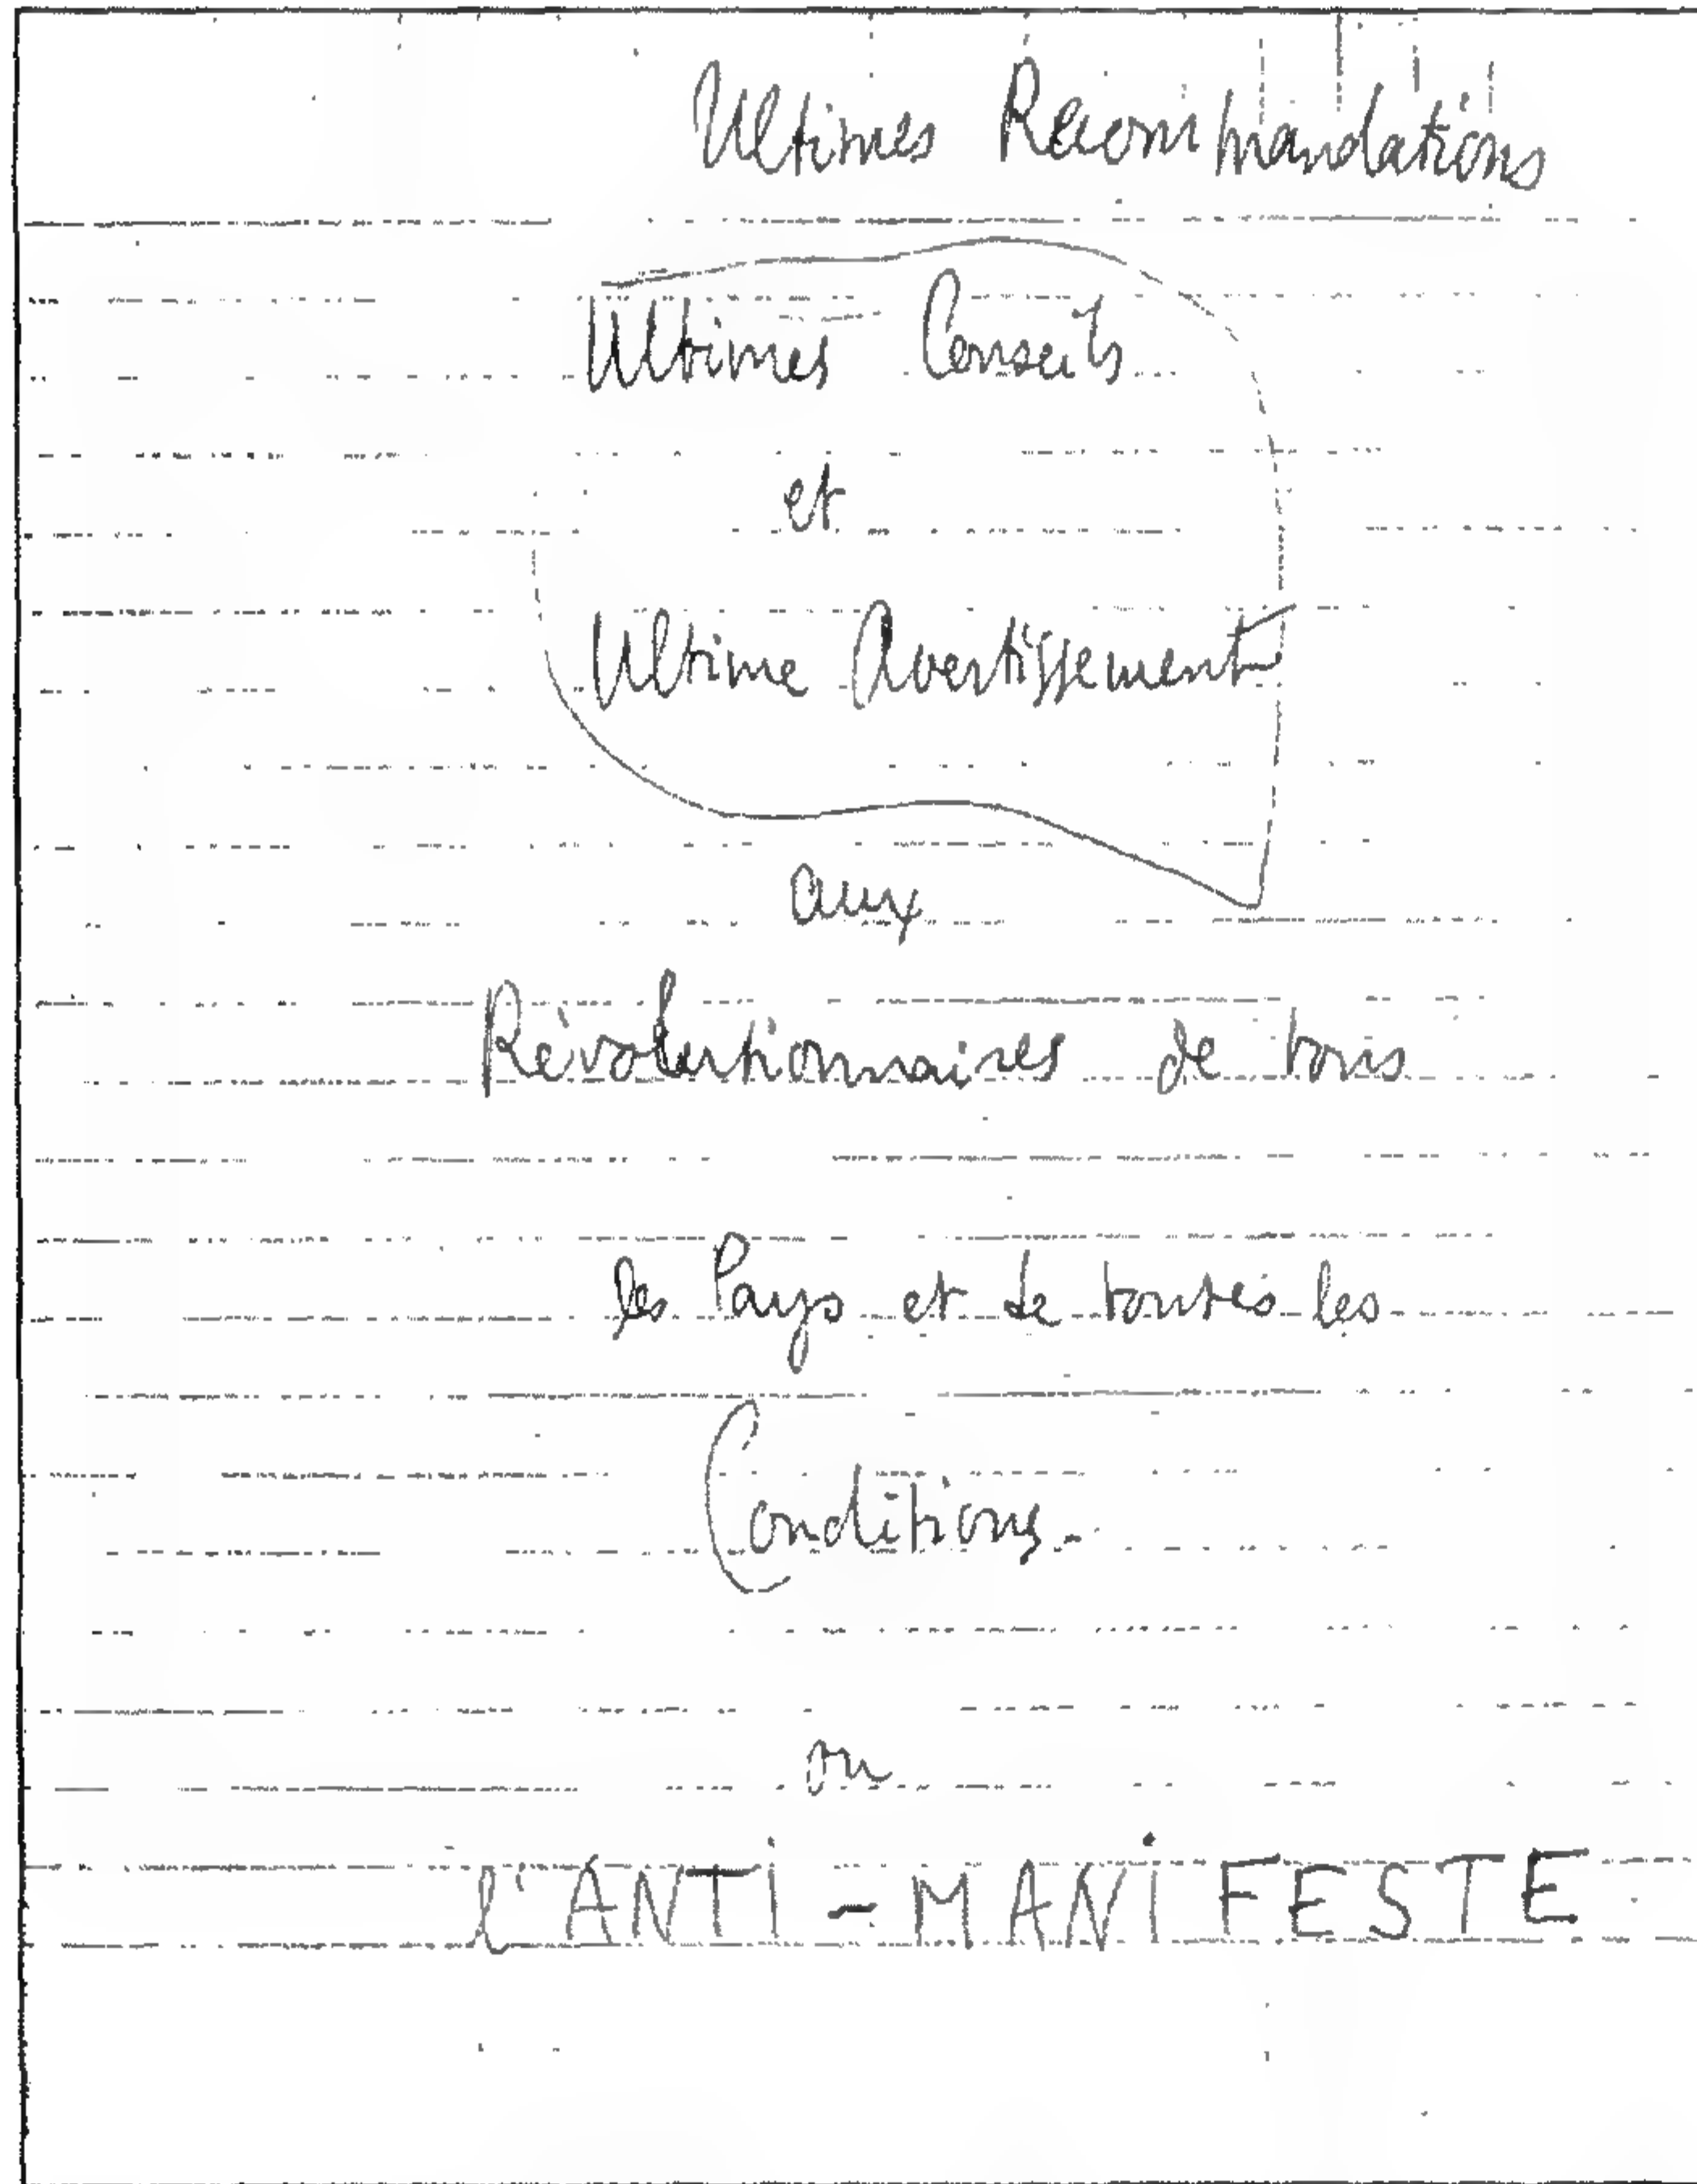 Ultimes Recommandations
Ultimes Conseils
et
Ultime Avertissement
aux
Révolutionnaires de tous
les Pays et de toutes les
Conditions.
ou
l'ANTI-MANIFESTE